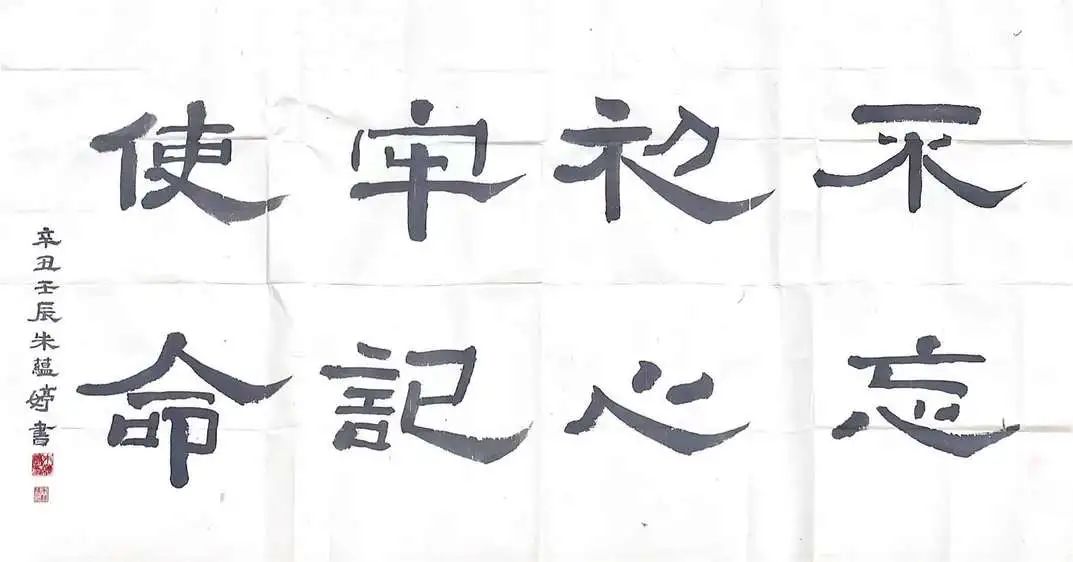 不忘
初心
牢記
使命
辛丑壬辰朱蘊婷書